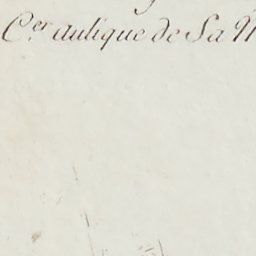 C.er aulique de Sa